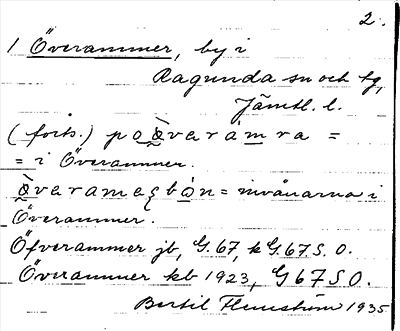 2.
1 Överammer, by i
Ragunda sn och tg,
Jämtl. l.
(forts.) po Överàmra =
= i Överammer.
Överamesbön = invånarna i
Överammer.
Öfverammer jb, G.67, k G.67.S. O.
Överammer kb 1923, G67SO.
Bertil Flemström 1935